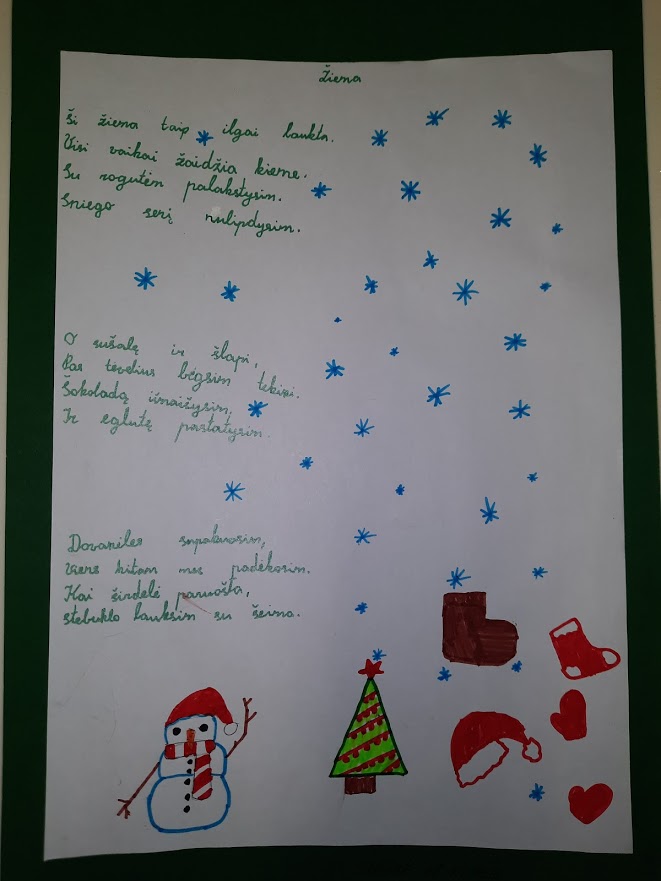 Žiema
Ši žiema taip ilgai laukta.
Visi vaikai žaidžia kieme.
Su rogutėm palakstysim.
Sniego senį nulipdysim.
O sušalę ir šlapi,
Pas tėvelius bėgsim tekini.
Šokoladą išmaišysim,
Ir eglutę pastatysim.
Dovanėles supakuosim,
viens kitam mes padėkosim.
Kai širdelė paruošta,
stebuklo lauksim su šeima.